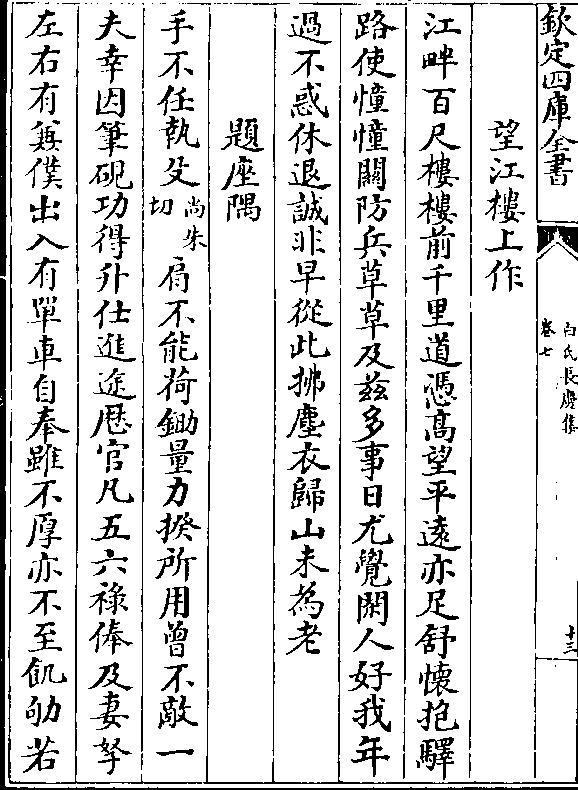 欽定四庫全書
白氏長慶集
卷七
十三
望江樓上作
江畔百尺樓樓前千里道憑髙望平逺亦足舒懷抱驛
路使憧憧關防兵草草及兹多事日尤覺閑人好我年
過不惑休退誠非早從此拂塵衣歸山未為老
題座隅
手不任執殳
尚朱
切
肩不能荷鋤量力揆所用曾不敵一
夫幸因筆硯功得升仕進途厯官凡五六祿俸及妻孥
左右有兼僕出入有單車自奉雖不厚亦不至飢劬若